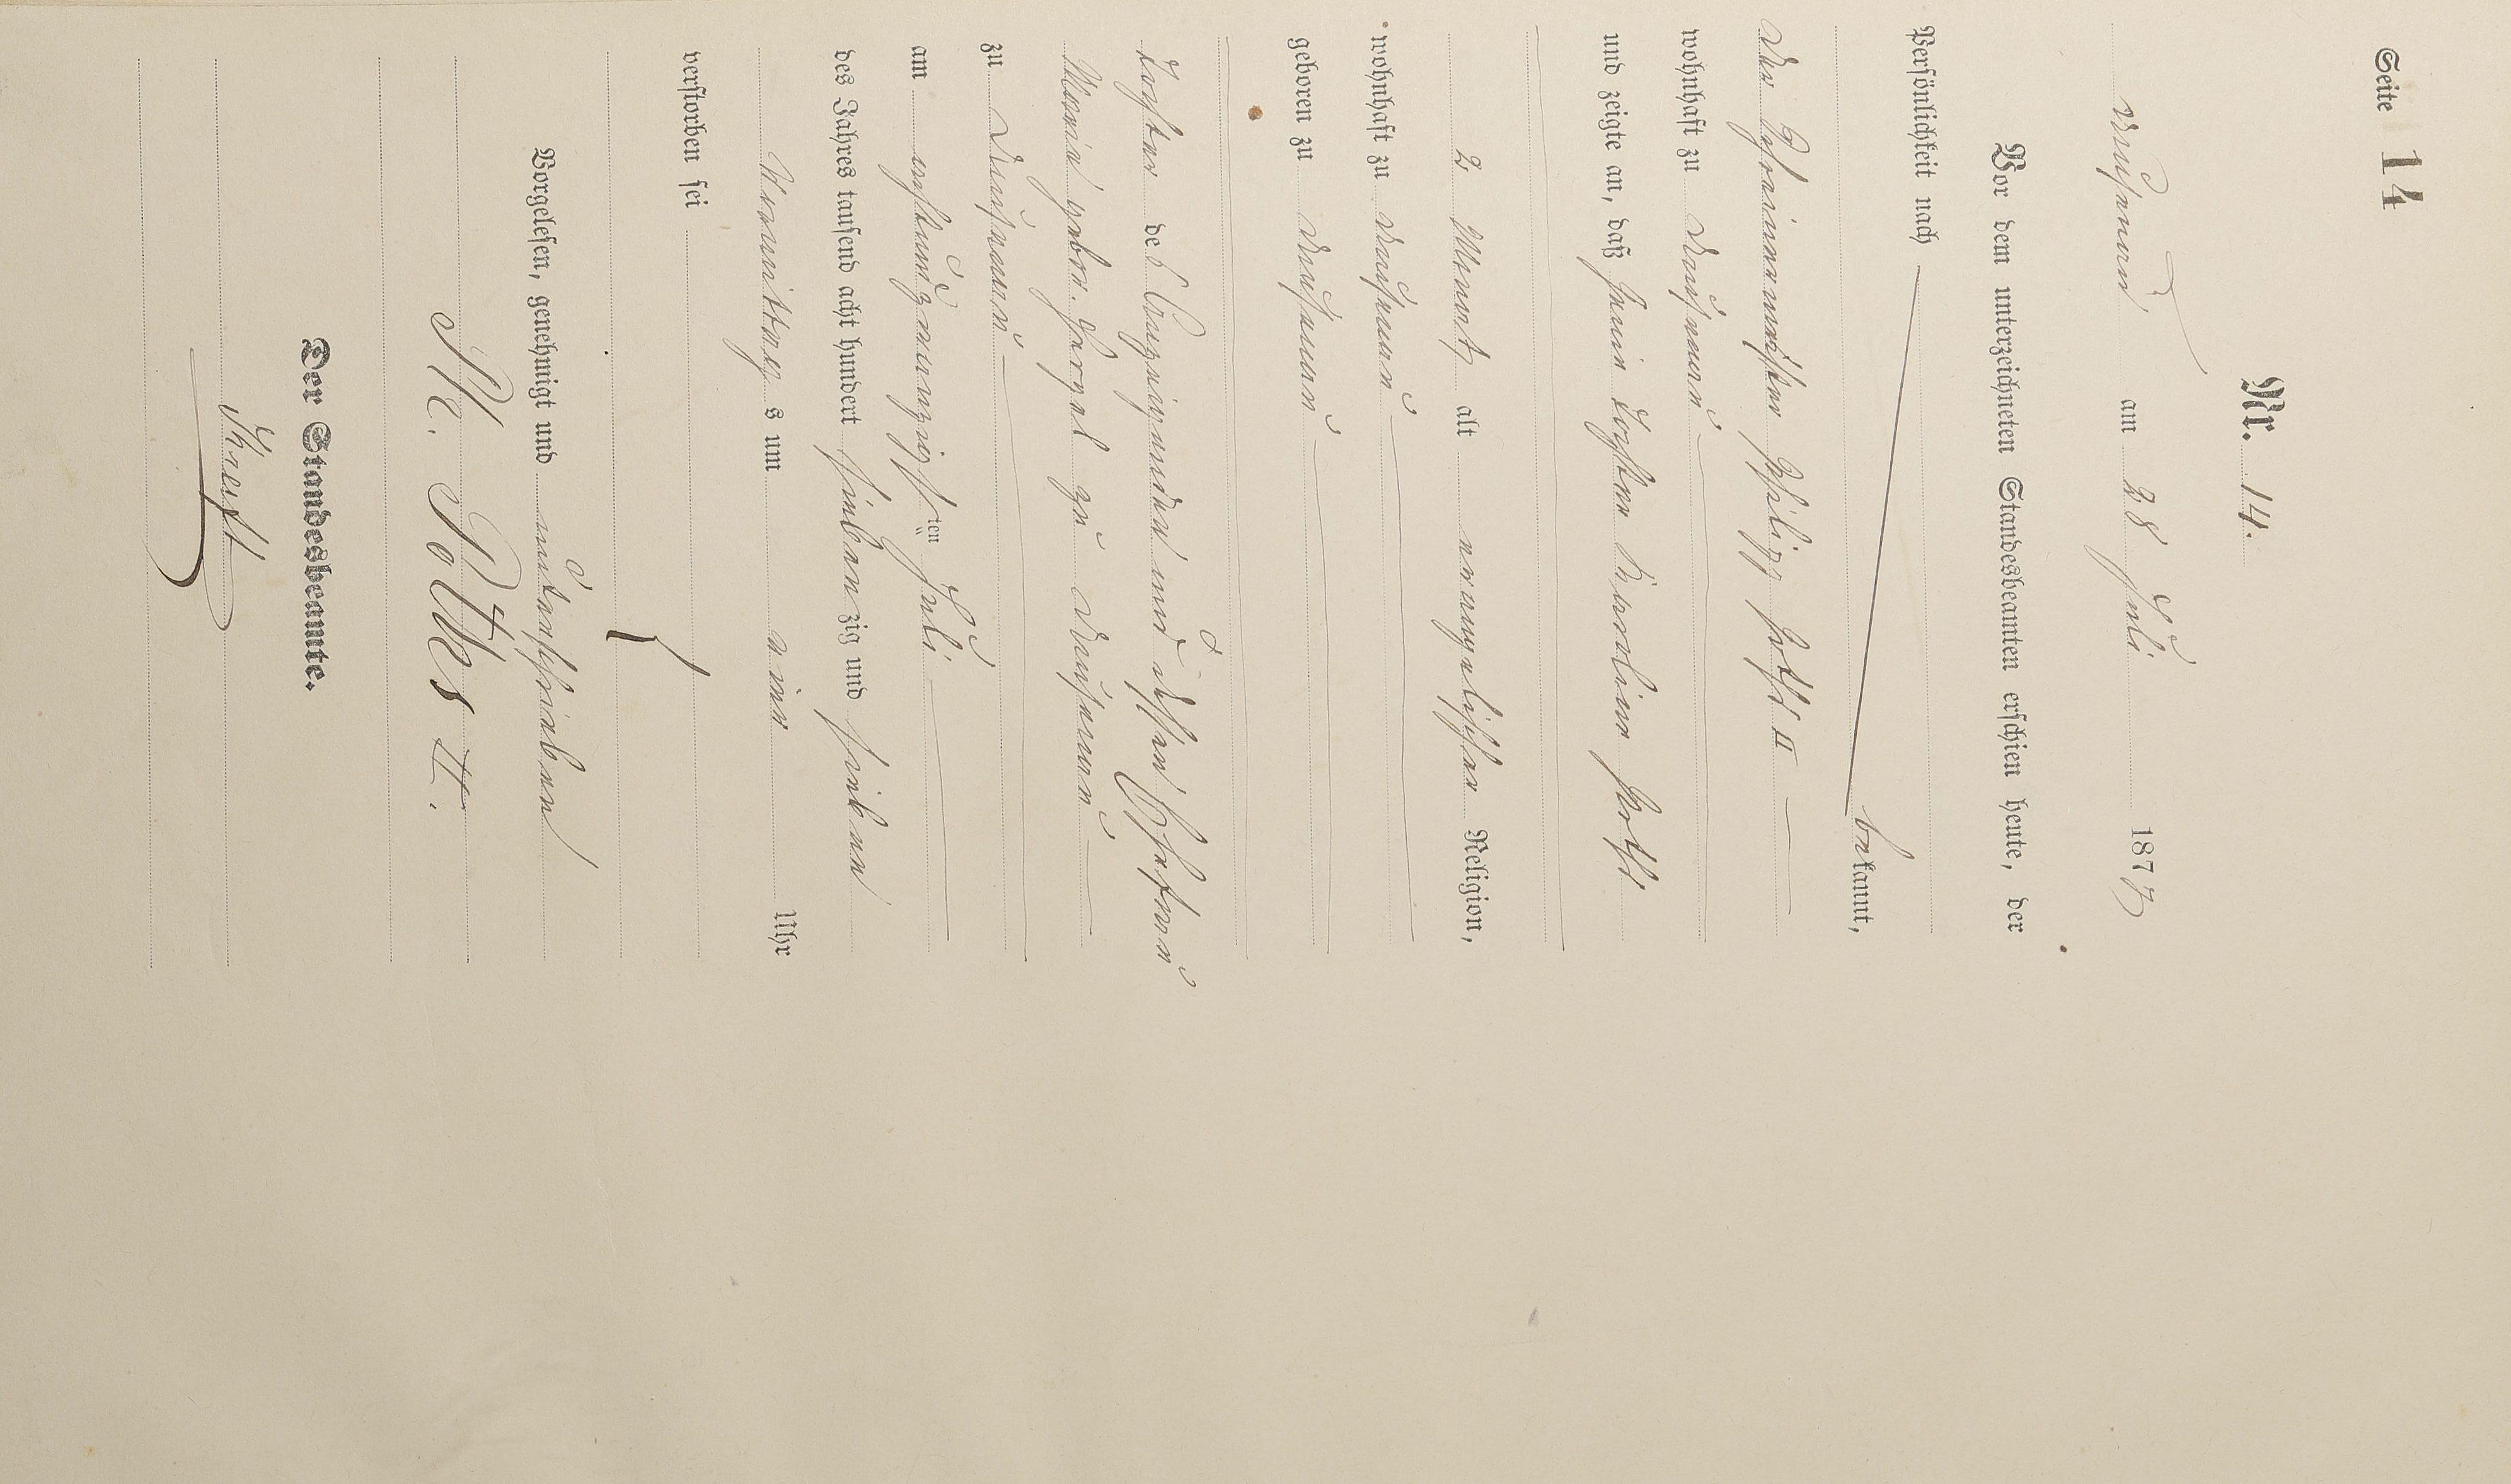 Seite 14
Nr. 14.
am 28 Juli 1877
Vor dem unterzeichneten Standesbeamten erschien heute, der
Persönlichkeit nach
bekannt,
der Schreinermeister Philipp Potth II
wohnhaft zu
und zeigte an, daß seine Tochter Karoline Potth
2 Monat alt evangelischer Religion,
wohnhaft zu
geboren zu
Tochter des Anzeigenden und dessen Ehefrau
Maria gebor. zu
zu
am achtundzwanzigsten Juli
des Jahres tausend acht hundert siebenzig und sieben
Vormittags um ein Uhr
verstorben sei
Vorgelesen, genehmigt und unterschrieben
Ph. II.
Der Standesbeamte.